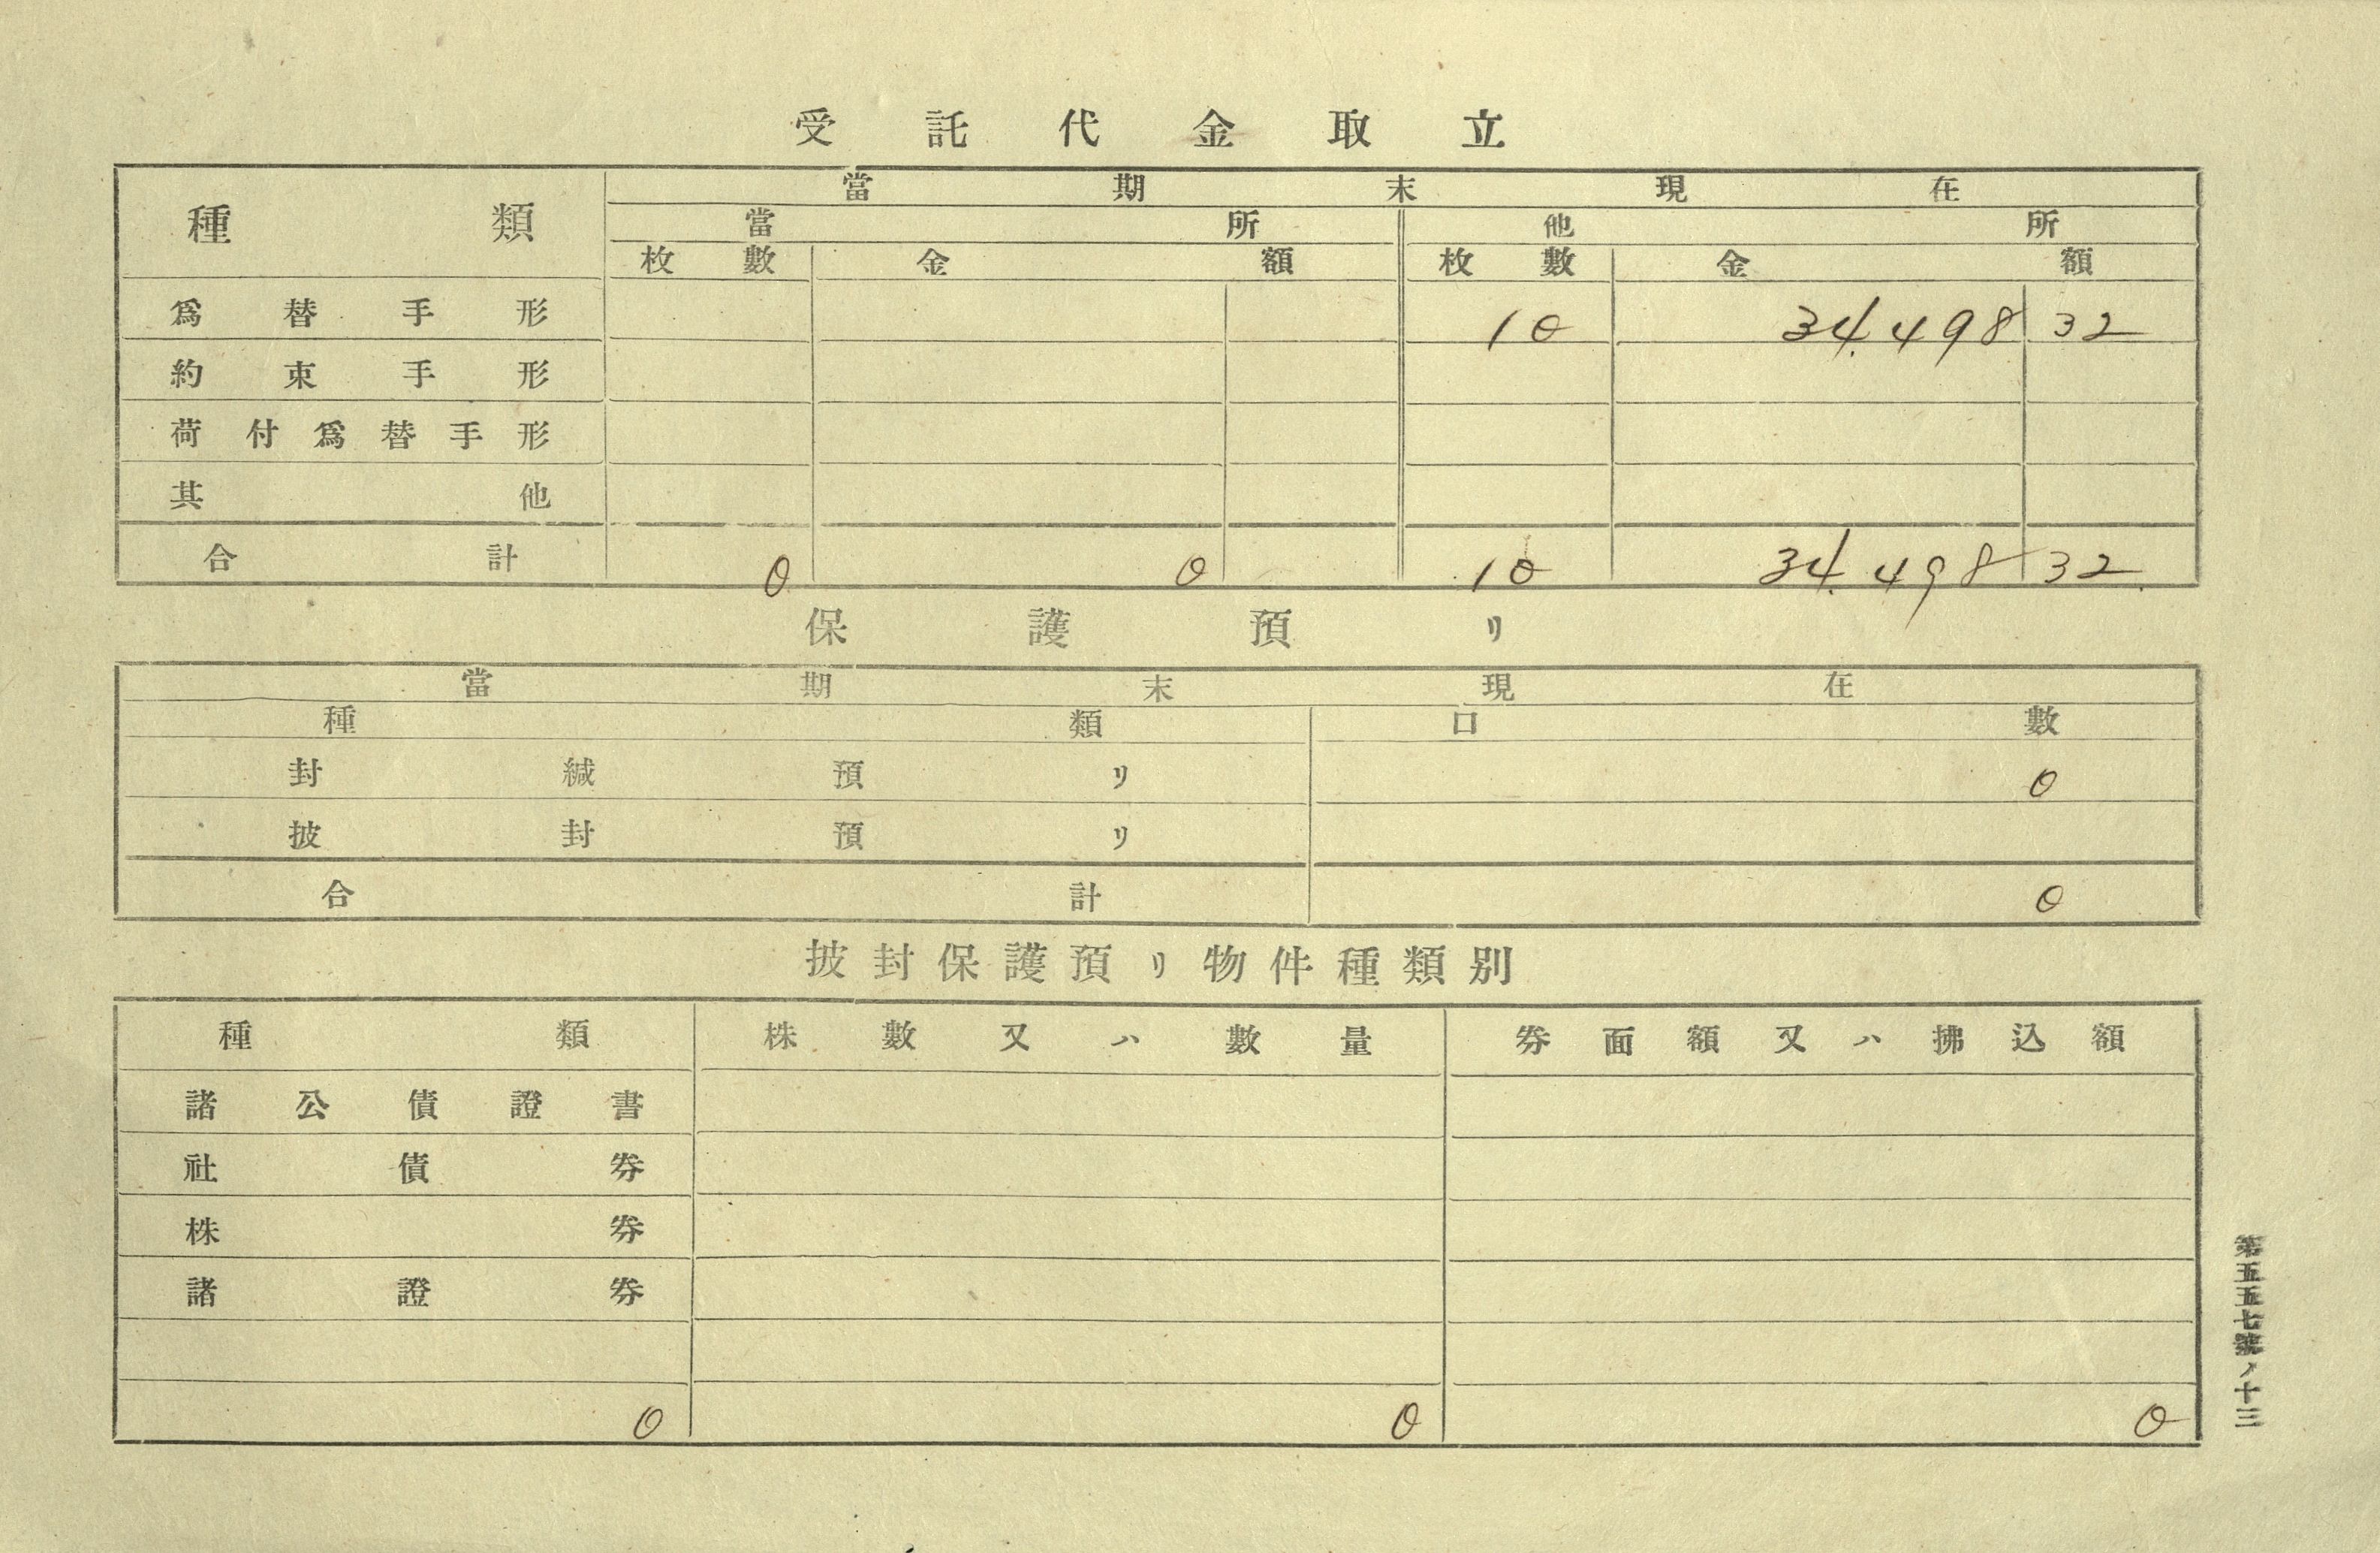 受託代金取立
種類 當期末現在
當所 他所
枚數 金額 枚數 金額
爲替手形 10 34,498 32
約束手形
荷付爲替手形
其他
合計 0 0 10 34,498 32
保護預リ
當期末現在
種類 口數
封緘預リ 0
披封預リ
合計 0
披封保護預リ物件種類別
種類 株數又ハ數量 券面額又ハ拂込額
諸公債證書
社債券
株券
諸證券
0 0 0
第五五七號ノ十三